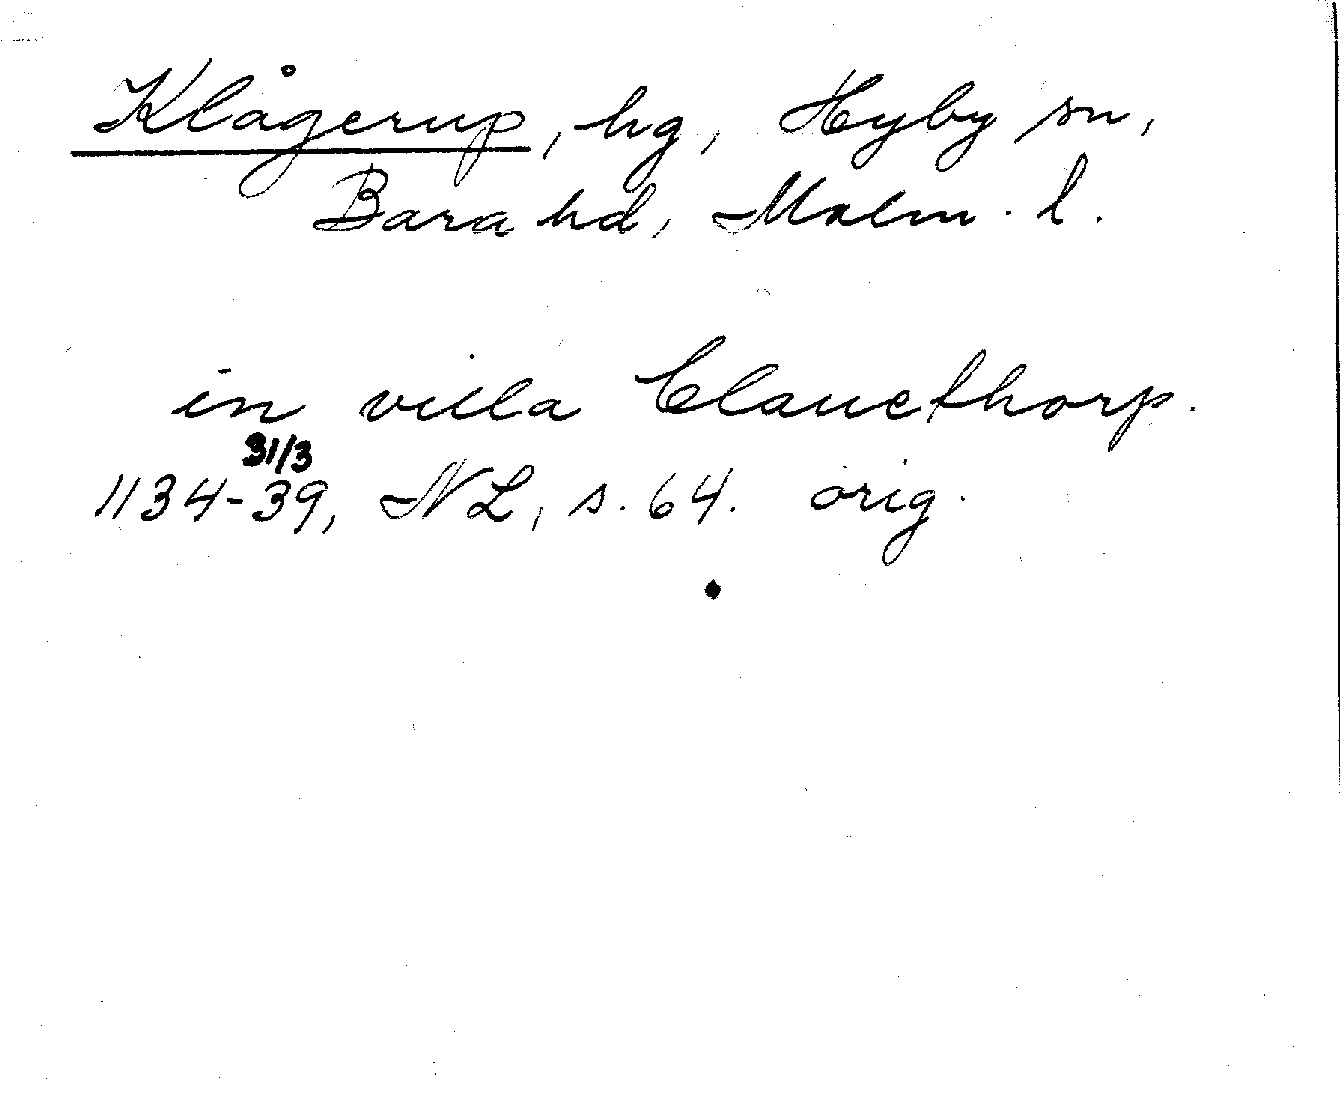 Klågerup, hg, Hyby sn,
Bara hd, Malm. l.
in villa Clauethorp.
31/3
1134-39, NL, s. 64. orig.